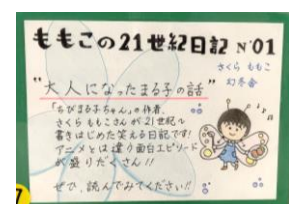 ももこの21世紀日記 N°01
さくら ももこ
幻冬舎
"大人になったまる子の話"
「ちびまる子ちゃん」の作者、
さくらももこさんが21世紀に
書きはじめた笑える日記です!
アニメとは違う面白エピソード
が盛りだくさん!!
ぜひ、読んでみてください!!
7